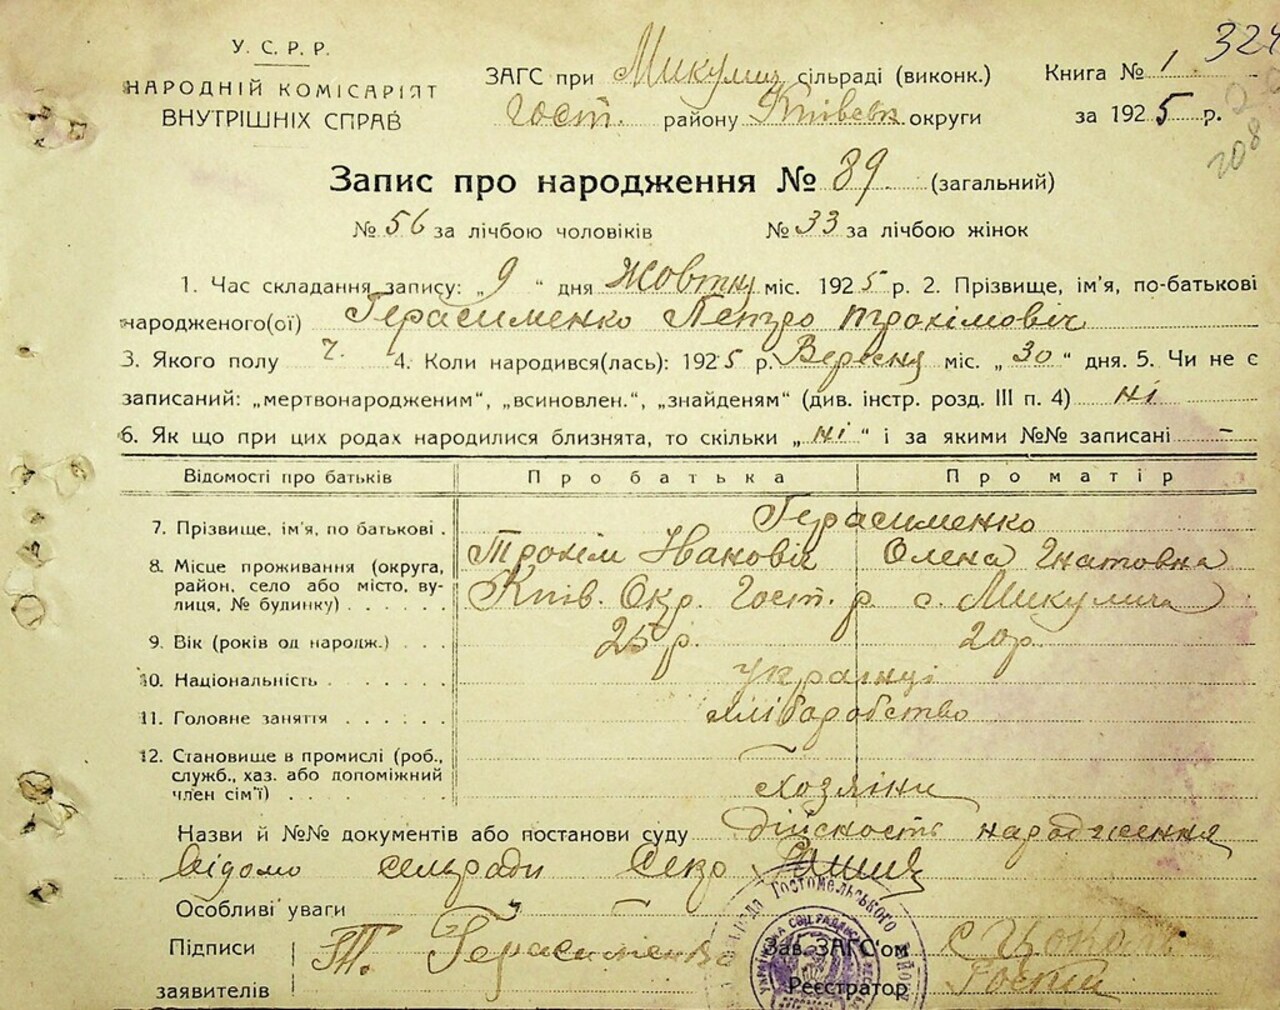 У. С. Р. Р.
НАРОДНІЙ КОМІСАРІЯТ
ВНУТРІШНІХ СПРАВ
ЗАГС при Микулиц. сільраді (виконк.)
Гост. району Київськ округи
Книга № 1
за 1925 р.
324
208
Запис про народження № 89 (загальний)
№ 56 за лічбою чоловіків № 33 за лічбою жінок
1. Час складання запису: „9“ дня Жовтня міс. 1925 р. 2. Прізвище, ім'я, по-батькові
народженого(ої) Герасименко Петро Трохімовіч
3. Якого полу Ч. 4. Коли народився(лась): 1925 р. Вересня міс. „30“ дня. 5. Чи не є
записаний: „мертвонародженим“, „всиновлен.“, „знайденям“ (див. інстр. розд. III п. 4) ні
6. Як що при цих родах народилися близнята, то скільки „ні“ і за якими №№ записані —
Відомості про батьків Про батька Про матір
7. Прізвище, ім'я, по батькові . Герасименко
Трохім Іванович Олена Гнатовна
8. Місце проживання (округа, район, село або місто, вулиця, № будинку) . . . . . . Київ. Окр. Гост. р. с. Микуличи
9. Вік (років од народж.) . . . 25 р. 20 р.
10. Національність . . . . . . українці
11. Головне заняття . . . . . . хліборобство
12. Становище в промислі (роб., служб., хаз. або допоміжний член сім'ї) . . . . . . . . — Хозяїни
Назви й №№ документів або постанови суду Дійсность народження
відомо сельради Секр
Особливі уваги — —
Підписи
заявителів
Т. Герасименко
Зав. ЗАГС'ом
Реєстратор
Гостомельського